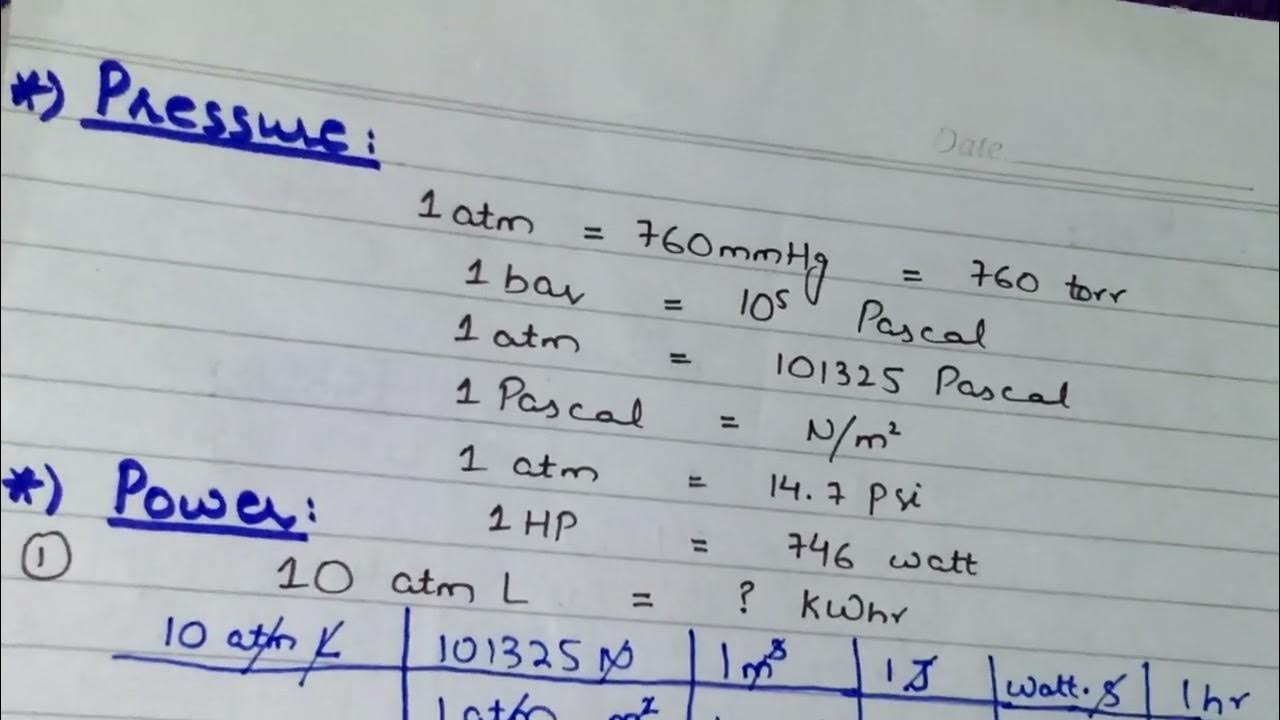 Date
*) Pressure:
1 atm = 760mmHg = 760 torr
1 bar = 10⁵ Pascal
1 atm = 101325 Pascal
1 Pascal = N/m²
1 atm = 14.7 psi
*) Power:
1 HP = 746 watt
① 10 atm L = ? kWhr
10 atm L | 101325 N | 1 m³ | 1 J | watt.s | 1 hr
1 atm m²